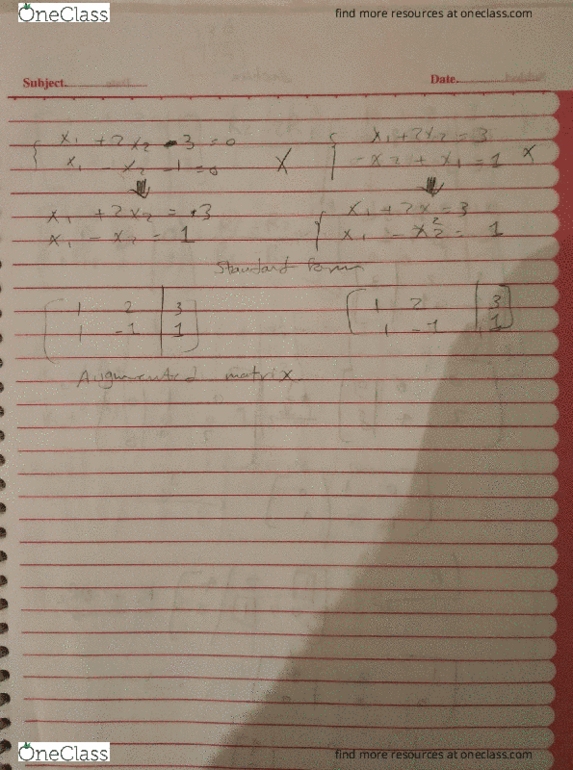 OneClass
find more resources at oneclass.com
Subject.
Date.
x₁ + 2x₂ - 3 = 0
x₁ - x₂ - 1 = 0 X
x₁ + 2x₂ = 3
-x₂ + x₁ = 1 x
x₁ + 2x₂ = 3
x₁ - x₂ = 1
x₁ + 2x₂ = 3
x₁ - x₂ = 1
Standard form
1 2 | 3
1 -1 | 1
1 2 | 3
1 -1 | 1
Augmented matrix.
OneClass
find more resources at oneclass.com